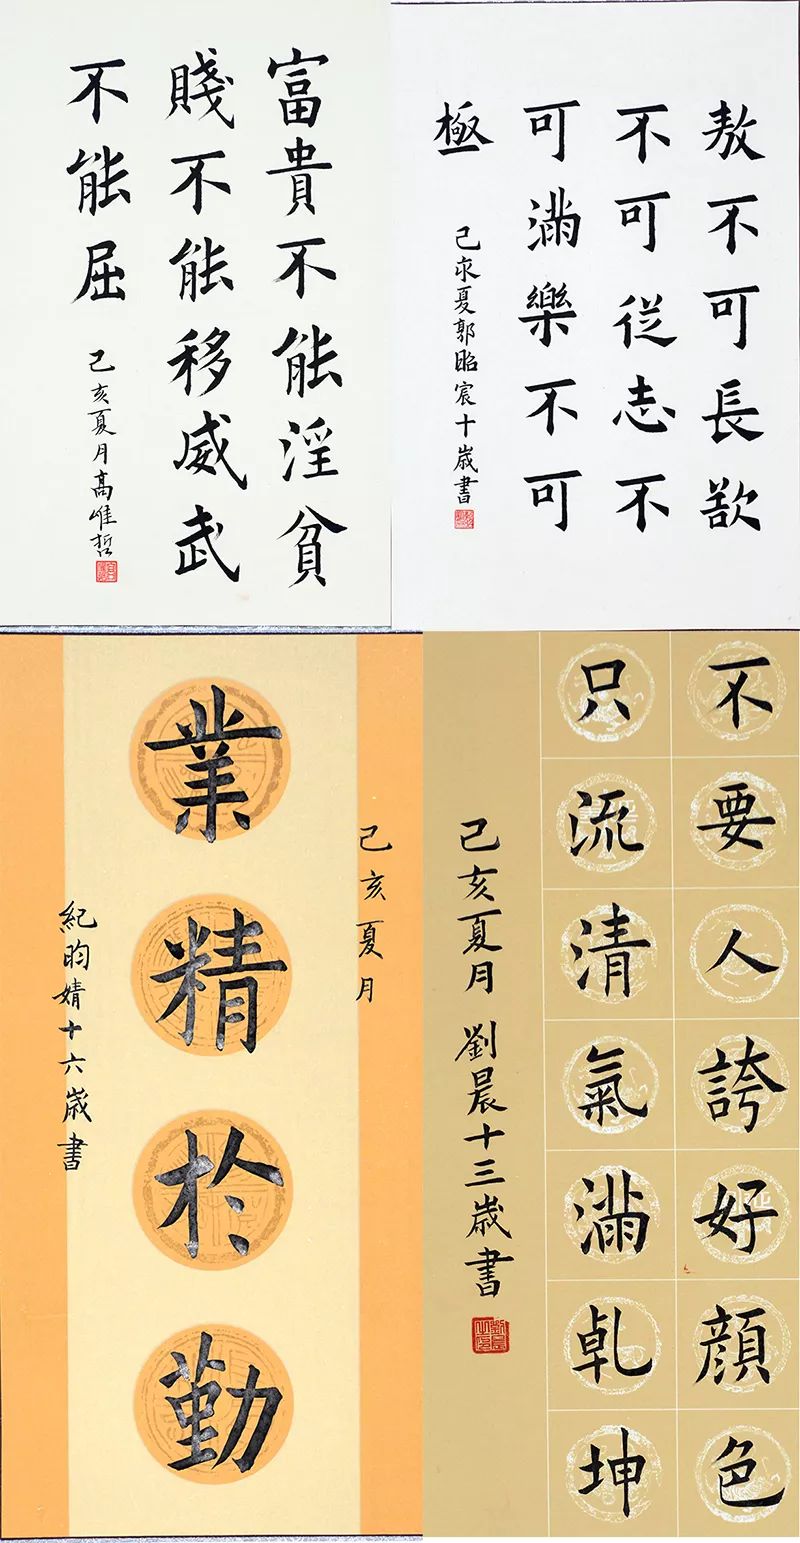 富貴不能淫貧
賤不能移威武
不能屈
己亥夏月高唯哲
敖不可長欲
不可從志不
可滿樂不可
極
己亥夏郭昭宸十歲書
己亥夏月
業精於勤
紀昀婧十六歲書
不要人誇好顏色
只流清氣滿乾坤
己亥夏月 劉晨十三歲書